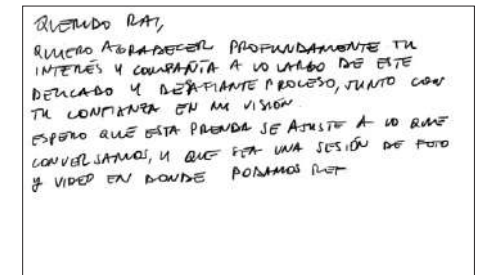 QUERIDO RAI,
QUIERO AGRADECER PROFUNDAMENTE TU
INTERÉS Y COMPAÑÍA A LO LARGO DE ESTE
DELICADO Y DESAFIANTE PROCESO, JUNTO CON
TU CONFIANZA EN MI VISIÓN
ESPERO QUE ESTA PRENDA SE AJUSTE A LO QUE
CONVERSAMOS, Y QUE SEA UNA SESIÓN DE FOTO
Y VIDEO EN DONDE PODAMOS